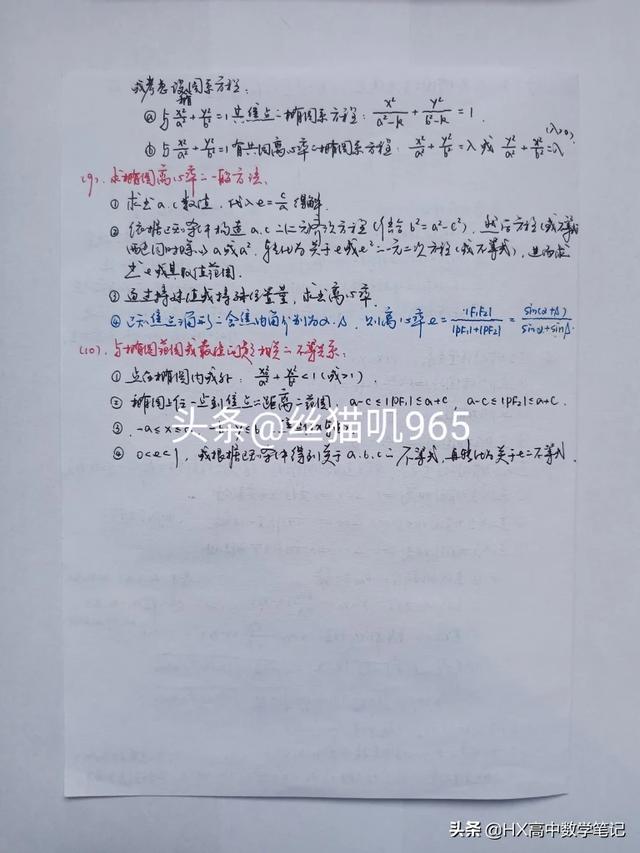 或考虑设椭圆系方程:
ⓐ 与 x²/a² + y²/b² = 1 共焦点的椭圆系方程: x²/(a²-k) + y²/(b²-k) = 1.
ⓑ 与 x²/a² + y²/b² = 1 有共同离心率的椭圆系方程: x²/a² + y²/b² = λ 或 y²/a² + x²/b² = λ (λ>0)
(9). 求椭圆离心率的一般方法.
① 求出 a.c 数值, 代入 e = c/a 得解.
② 依据已知条件构造 a.c 的二元齐次方程 (结合 b² = a² - c²), 然后方程(或不等式
两边同时除以 a 或 a², 转化为关于 e 或 e² 的一元二次方程(或不等式), 进而求
出 e 或其取值范围.
③ 通过特殊值或特殊位置, 求出离心率.
④ 已知焦点三角形的两角分别为 α.β, 则离心率 e = |F₁F₂|/(|PF₁|+|PF₂|) = sin(α+β)/(sinα+sinβ)
(10). 与椭圆范围或最值问题相关的不等关系:
① 点在椭圆内或外: x²/a² + y²/b² < 1 (或 > 1).
② 椭圆上任一点到焦点的距离的范围. a-c ≤ |PF₁| ≤ a+c, a-c ≤ |PF₂| ≤ a+c.
③. -a ≤ x ≤ a, -b ≤ y ≤ b
④ 0<e<1, 或根据已知条件得到关于 a.b.c 的不等式, 再转化为关于 e 的不等式.
头条@丝猫叽965
头条 @HX高中数学笔记